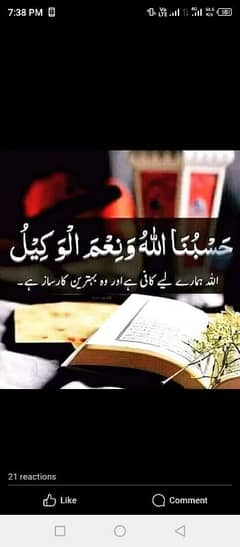 7:38 PM
حَسْبُنَا اللهُ وَنِعْمَ الْوَكِيْلُ
اللہ ہمارے لیے کافی ہے اور وہ بہترین کارساز ہے۔
21 reactions
Like Comment